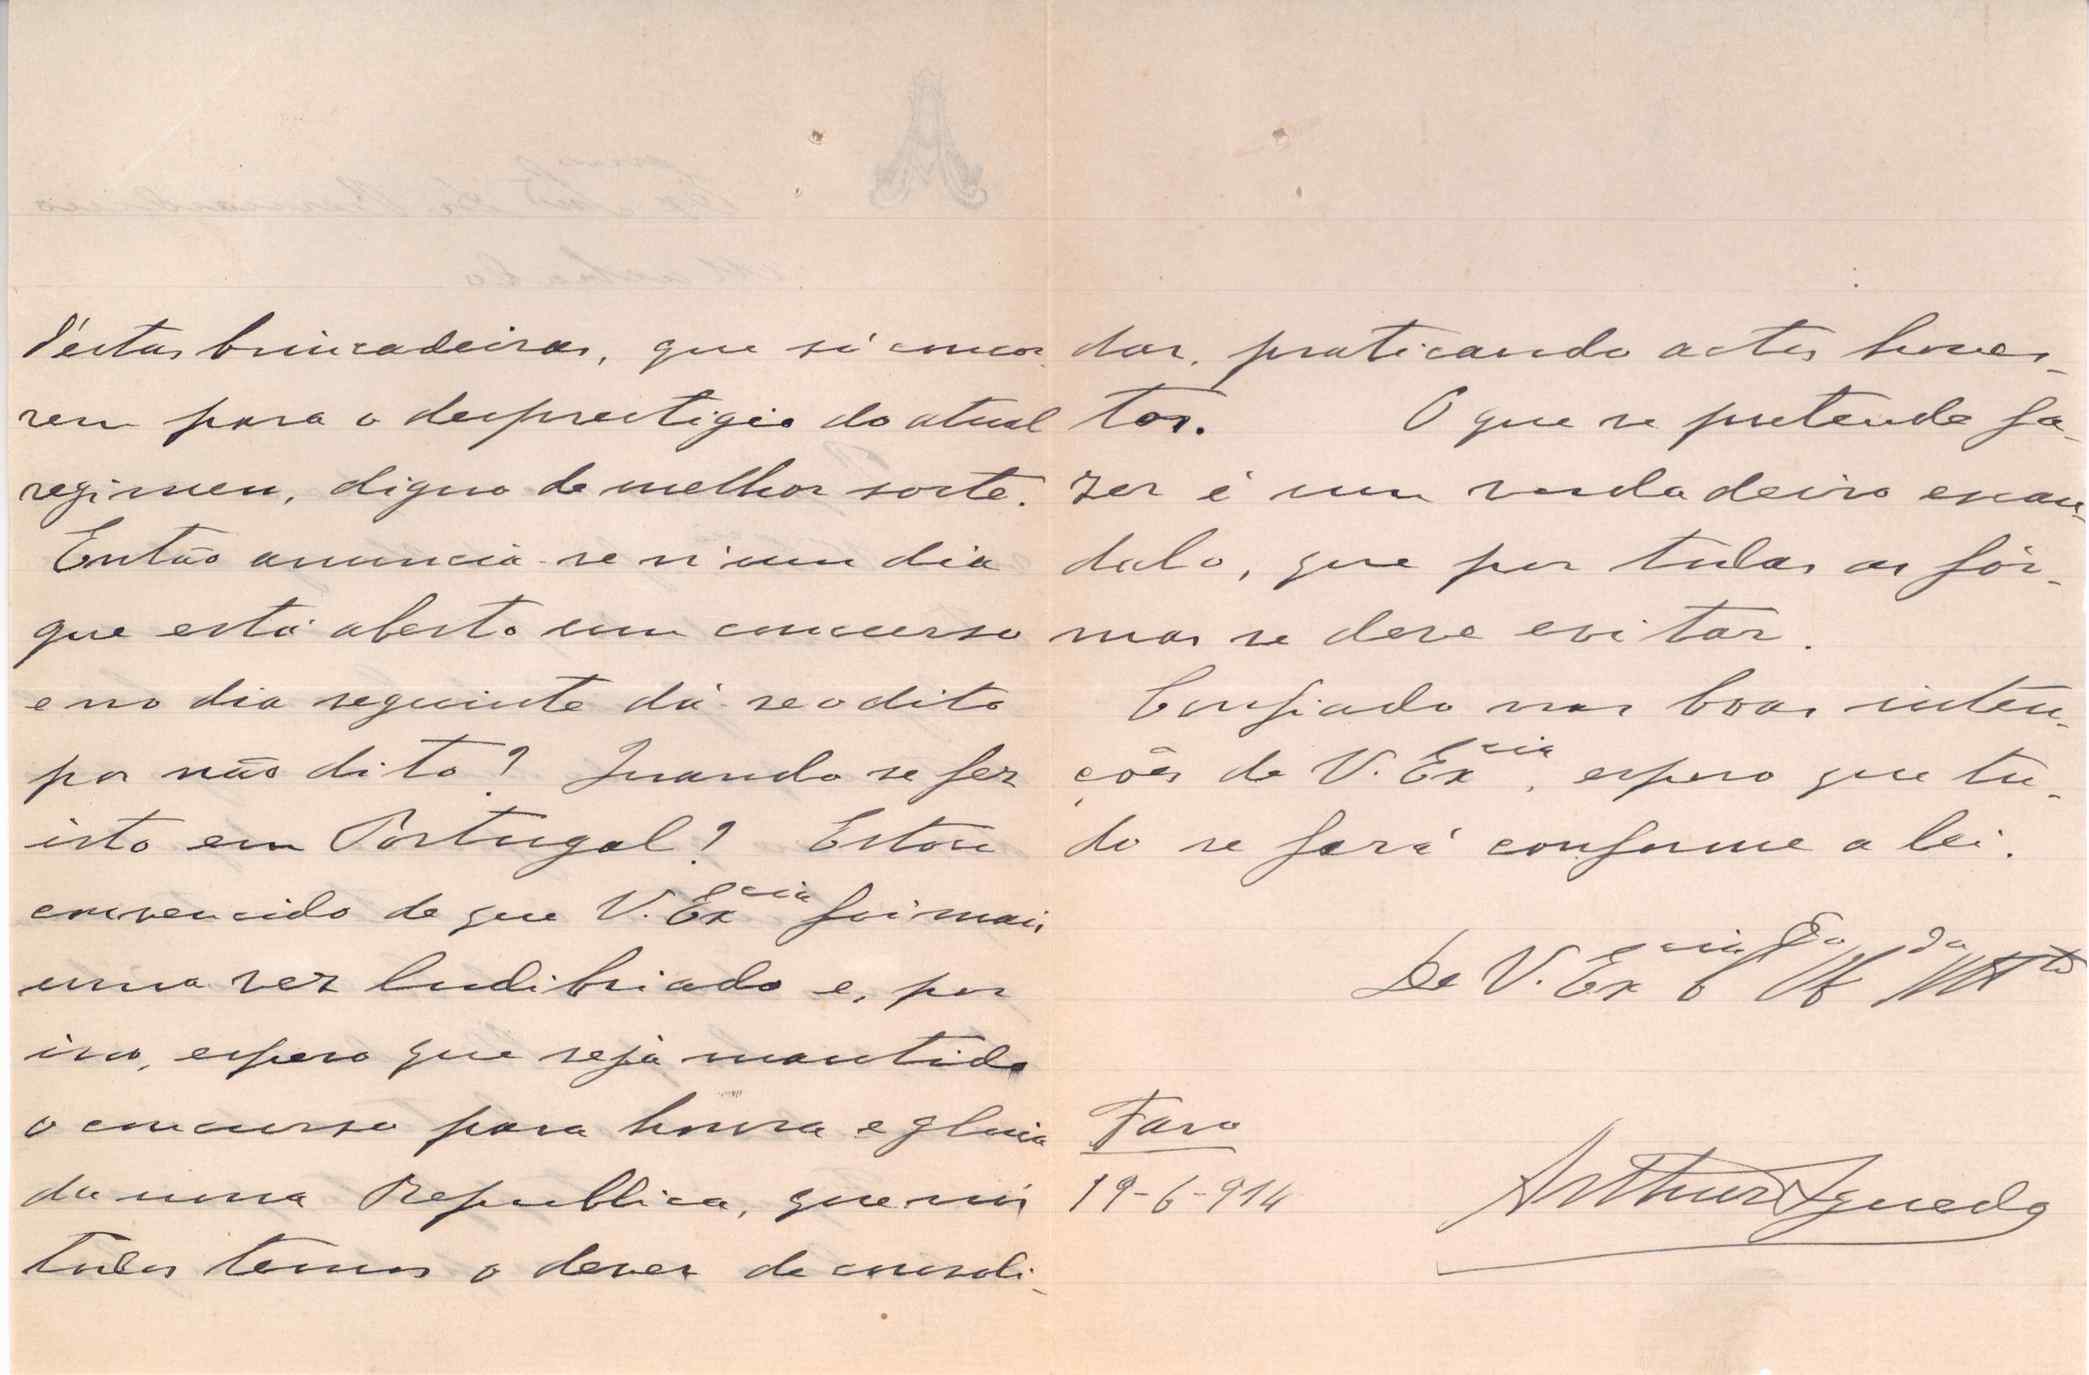 d'estas brincadeiras, que só concor-
rem para o desprestigio do atual
regimen, digno de melhor sorte.
Então anuncia-se n'um dia
que está aberto um concurso
e no dia seguinte dá-se o dito
por não dito? Quando se fez
isto em Portugal? Estou
convencido de que V. Ex.cia foi mais
uma vez ludibriado e, por
isso, espero que seja mantido
o concurso para honra e gloria
da nossa Republica, que nós
todos temos o dever de consoli-
dar, praticando actos hones-
tos. O que se pretende fa-
zer é um verdadeiro escan-
dalo, que por todas as fór-
mas se deve evitar.
Confiado nas boas inten-
ções de V. Ex.cia, espero que tu-
do se fará conforme a lei.
De V. Ex.cia
Faro
19-6-914
Arthur Aguedo